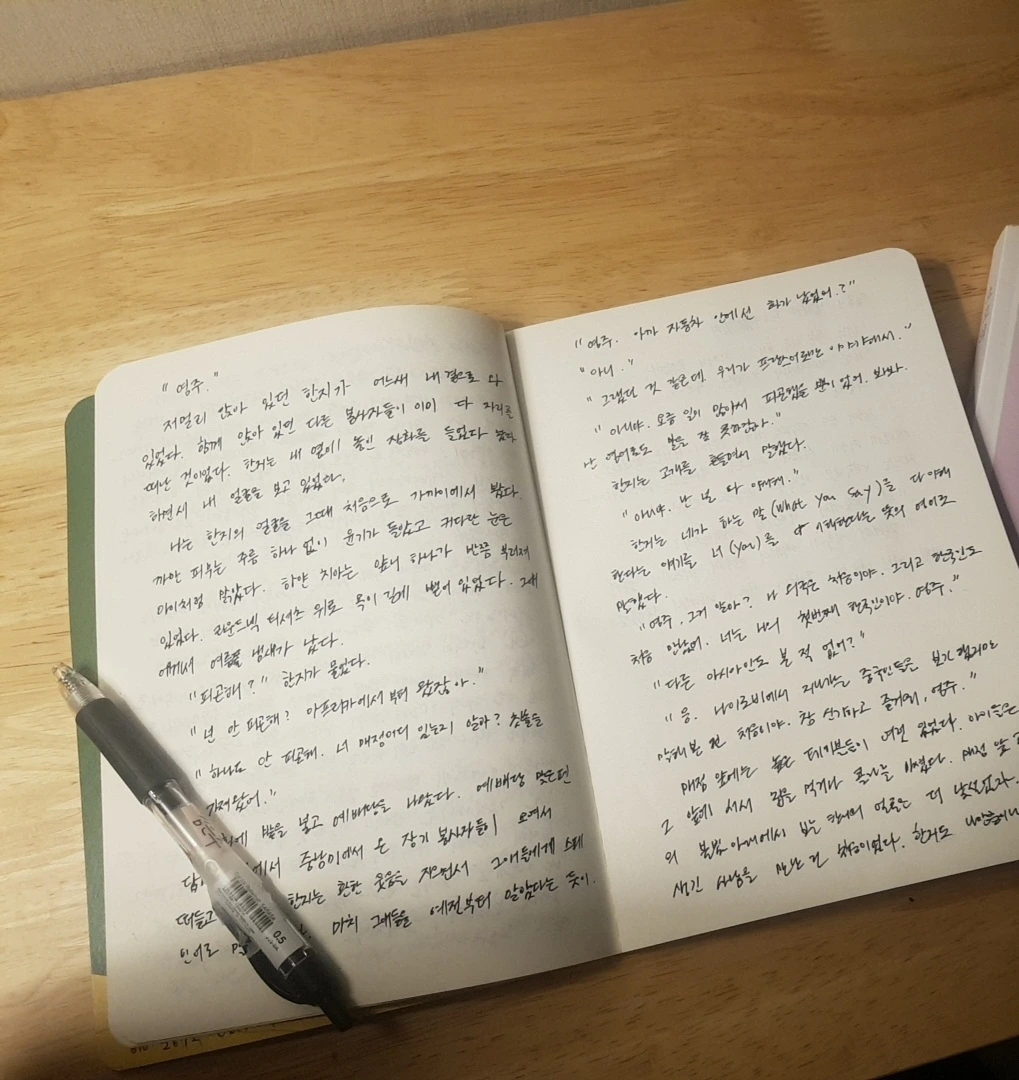 "영주."
저멀리 앉아 있던 한지가 어느새 내 곁으로 와
있었다. 함께 앉아 있던 다른 봉사자들이 이미 다 자리를
떠난 것이었다. 한지는 내 옆에 놓인 전화를 들었다 놨다
하면서 내 얼굴을 보고 있었다.
나는 한지의 얼굴을 그때 처음으로 가까이에서 봤다.
까만 피부는 주름 하나 없이 윤기가 돌았고 커다란 눈은
아이처럼 맑았다. 하얀 치아는 앞니 하나가 반쯤 부러져
있었다. 라운드넥 티셔츠 위로 목이 길게 뻗어 있었다. 그애
에게서 여름 냄새가 났다.
"피곤해?" 한지가 물었다.
"넌 안 피곤해? 아프리카에서부터 왔잖아."
"하나도 안 피곤해. 너 매점이 어디 있는지 알아? 초를
가져왔어."
밭을 불고 예배당을 나왔다. 예배당 맞은편
에서 중남미에서 온 장기 봉사자들이 모여서
떠들고 한지는 환한 웃음을 지으면서 그애들에게 스페
인어로 마치 그애들을 예전부터 알았다는 듯이.
"영주. 아까 자동차 안에선 화가 났었어?"
"아니."
"그랬던 것 같은데. 우리가 프랑스어로만 이야기해서."
"아니야. 요즘 일이 많아서 피곤했을 뿐이었어. 봐봐.
난 영어로도 말을 잘 못하잖아."
한지는 고개를 흔들면서 말했다.
"아니야. 난 널 다 이해해."
한지는 네가 하는 말(What you say)을 다 이해
한다는 얘기를 너(you)를 다 이해한다는 뜻의 영어로
말했다.
"영주, 그거 알아? 나 외국은 처음이야. 그리고 한국인도
처음 만났어. 너는 나의 첫번째 한국인이야. 영주."
"다른 아시아인도 본 적 없어?"
"응. 나이로비에서 지나가는 중국인들을 보기는 했지만
말해본 건 처음이야. 참 신기하고 즐거워, 영주."
매점 앞에는 높은 테이블들이 여럿 있었다. 아이들은
그 앞에 서서 감을 먹거나 콜라를 마셨다. 매점 앞
의 불빛 아래에서 보는 한지의 얼굴은 더 낯설었다.
생긴 사람을 만난 건 처음이었다. 한지도
0.5